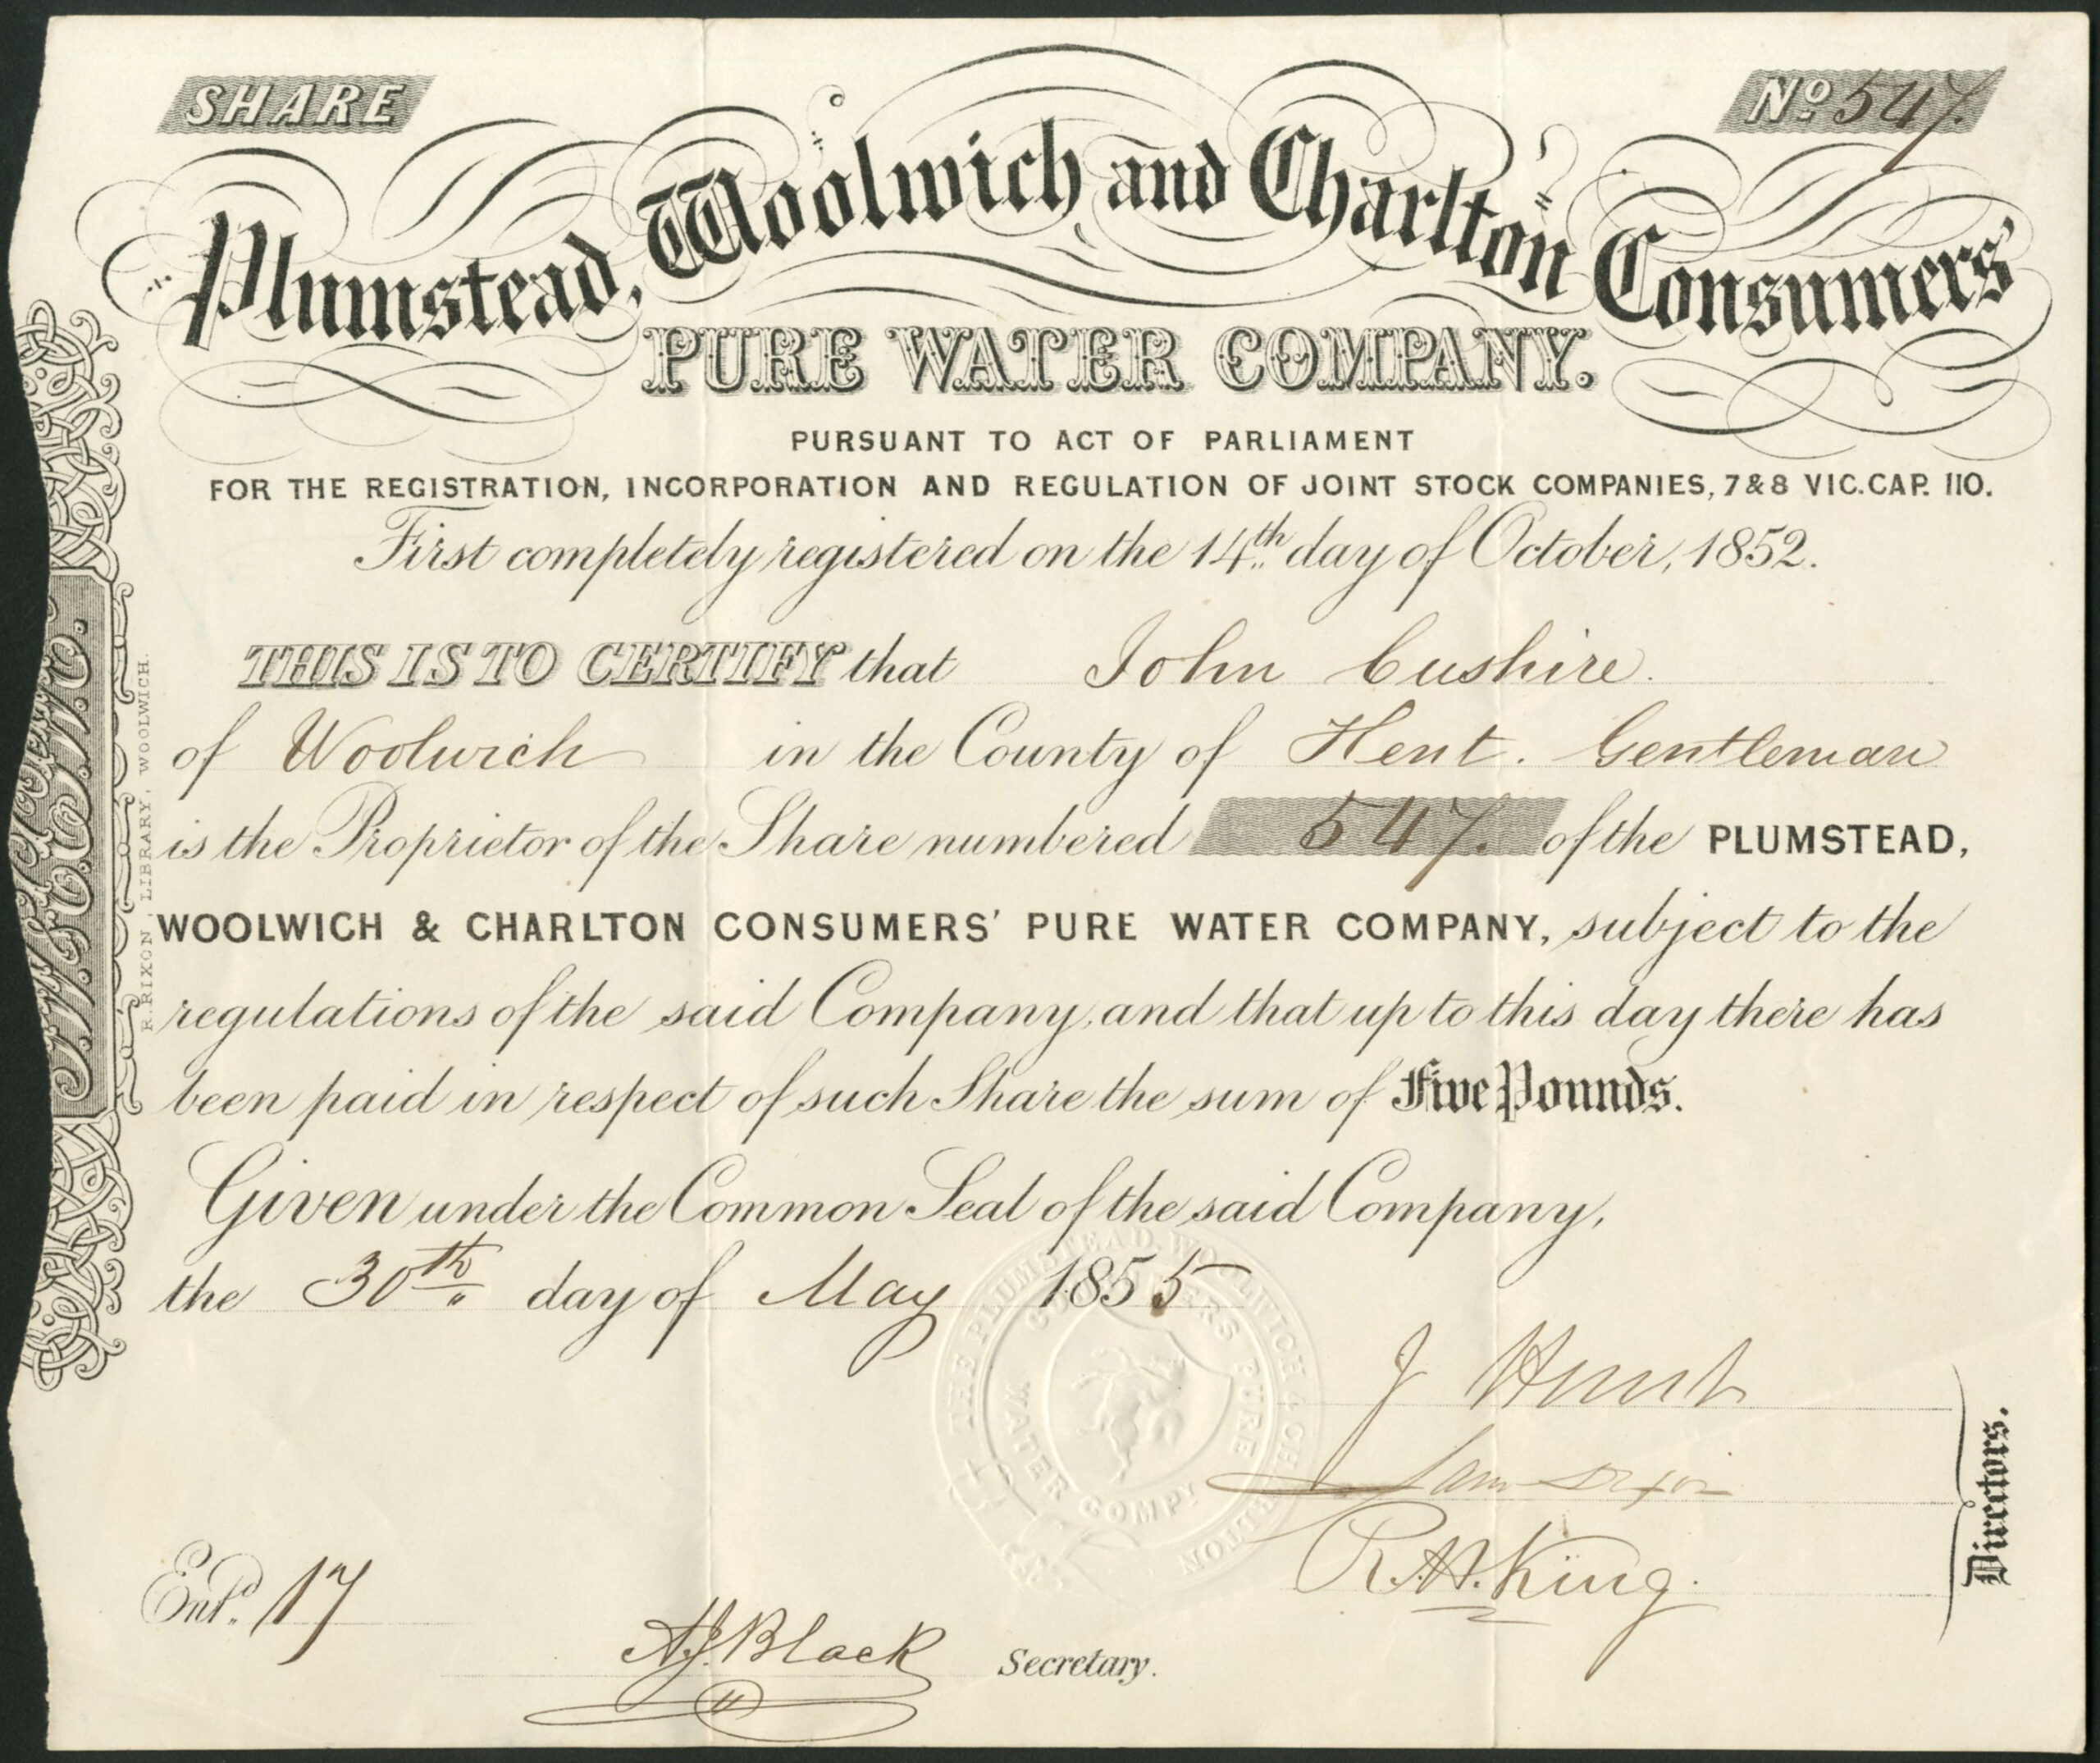 SHARE
No 547.
Plumstead, Woolwich and Charlton Consumers'
PURE WATER COMPANY.
PURSUANT TO ACT OF PARLIAMENT
FOR THE REGISTRATION, INCORPORATION AND REGULATION OF JOINT STOCK COMPANIES, 7 & 8 VIC. CAP. 110.
First completely registered on the 14th day of October, 1852.
THIS IS TO CERTIFY that John Cushire.
of Woolwich in the County of Kent. Gentleman
is the Proprietor of the Share numbered 547. of the PLUMSTEAD,
WOOLWICH & CHARLTON CONSUMERS' PURE WATER COMPANY, subject to the
regulations of the said Company, and that up to this day there has
been paid in respect of such Share the sum of Five Pounds.
Given under the Common Seal of the said Company,
the 30th day of May 1855
THE PLUMSTEAD WOOLWICH & CHARLTON
CONSUMERS PURE
WATER COMPY
J Hunt
R.H. King.
Directors.
Entd. 17
A.J. Black Secretary.
R. RIXON, LIBRARY, WOOLWICH.